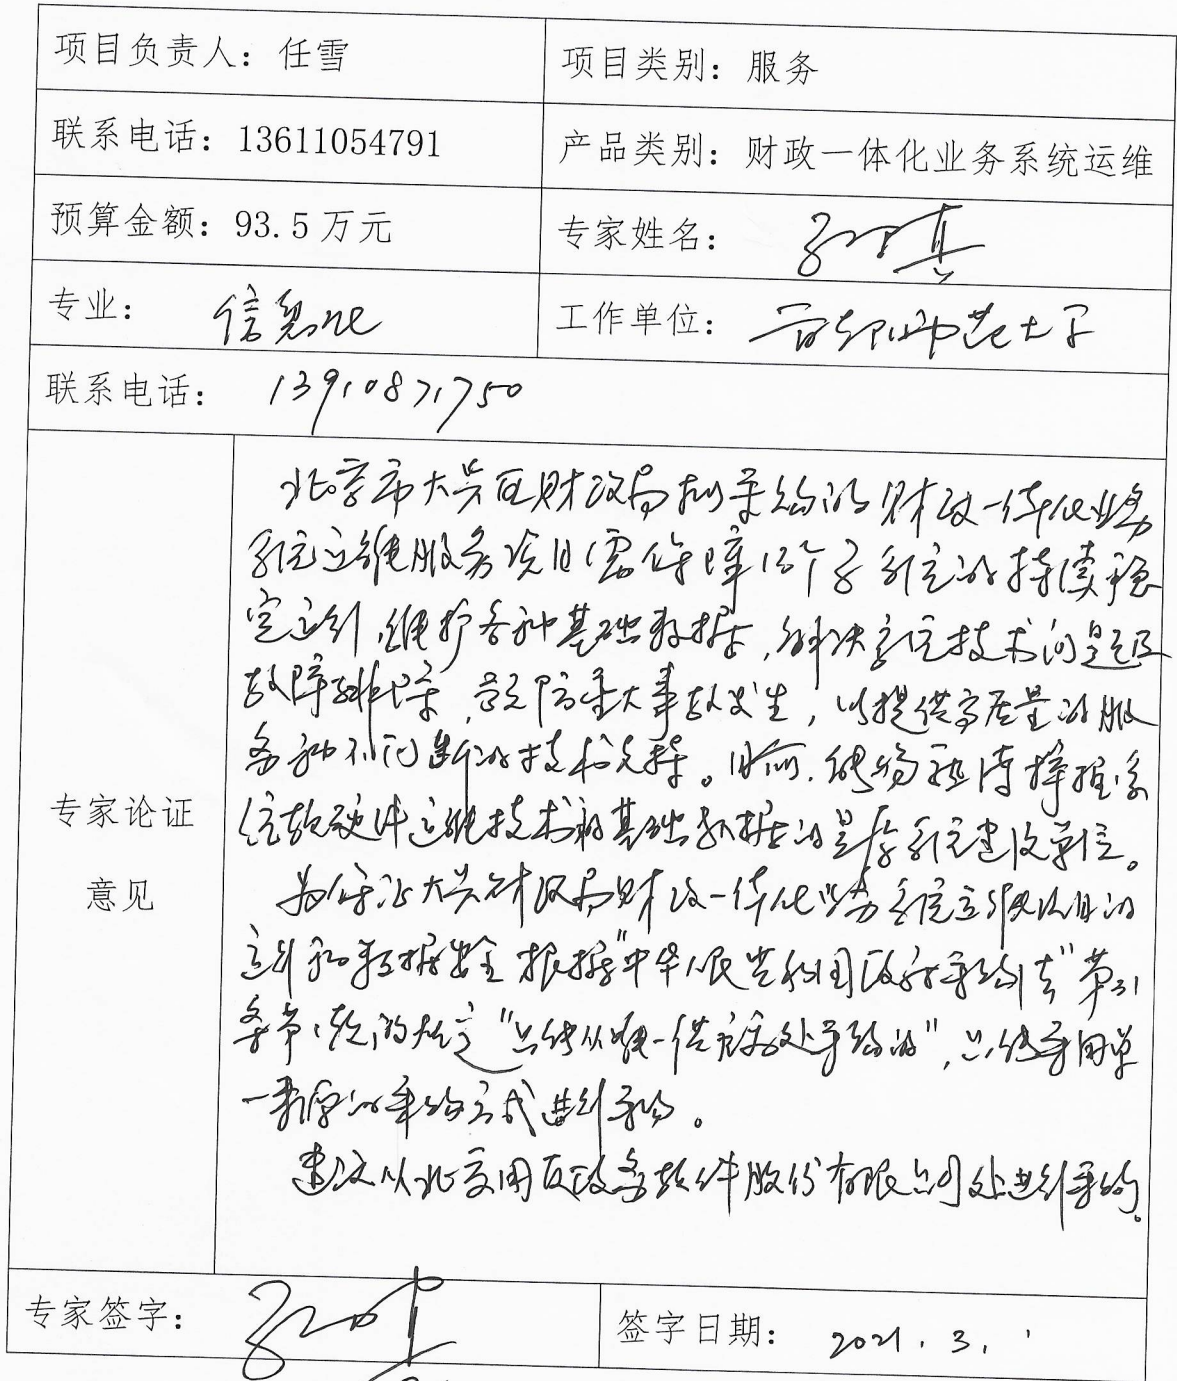 项目负责人：任雪
项目类别：服务
联系电话：13611054791
产品类别：财政一体化业务系统运维
预算金额：93.5万元
专家姓名：
专业：信息化
工作单位：首都师范大学
联系电话：13910871750
专家论证
意见
北京市大兴区财政局拟采购的财政一体化业务
系统运维服务项目需保障13个子系统的持续稳
定运行，维护各种基础数据，解决系统技术问题及
故障排除，预防重大事故发生，以提供高质量的服
务和不间断的技术支持。目前，能够熟悉掌握系
统软硬件运维技术和基础数据的是原系统建设单位。
为保证大兴财政局财政一体化业务系统项目的
运行和数据安全 根据"中华人民共和国政府采购法"第31
条第1款的规定"只能从唯一供应商处采购的"，只能采用单
一来源的采购方式进行采购。
建议从北京用友政务软件股份有限公司处进行采购。
专家签字：
签字日期：2021.3.